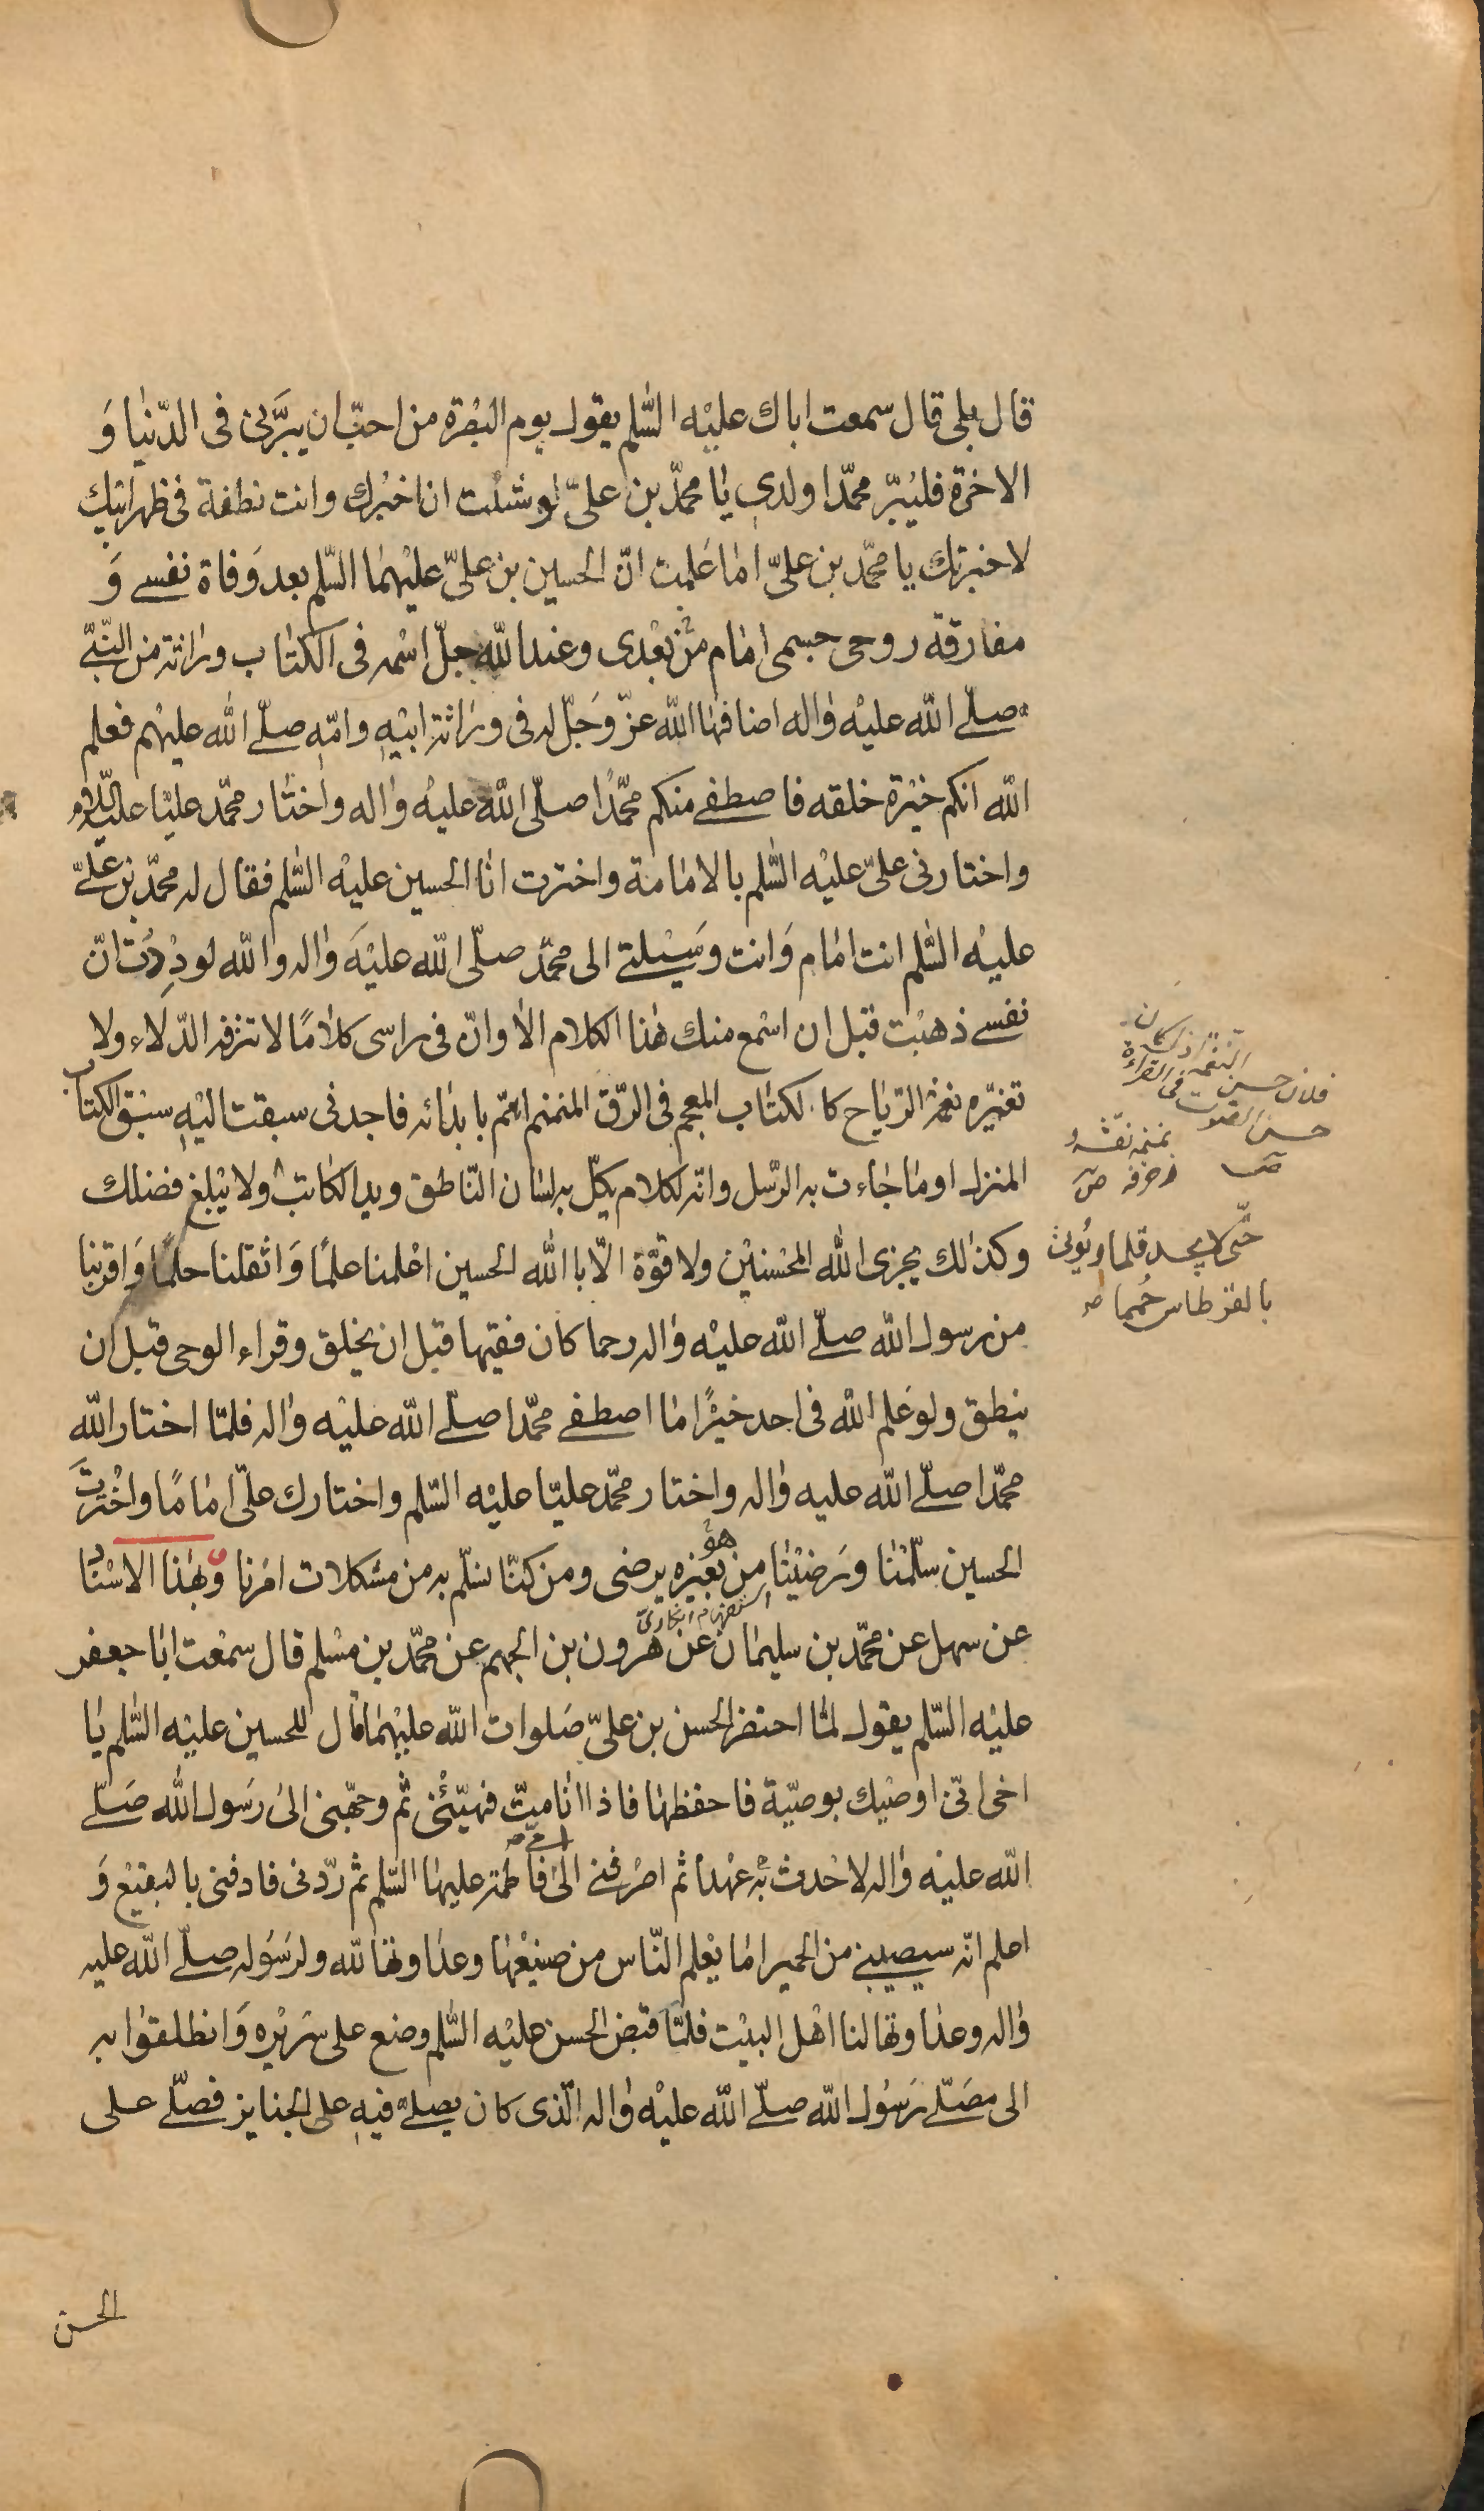 قال بلى قال سمعت اباك عليه السّلم يقول يوم البصرة من احبّ ان يبرّنى فى الدّنيا و
الاخرة فليبرّ محمّدا ولدى يا محمّد بن علىّ لو شئت ان اخبرك وانت نطفة فى ظهر ابيك
لاخبرتك يا محمّد بن علىّ اما علمت انّ الحسين بن علىّ عليهما السّلم بعد وفاة نفسى و
مفارقة روحى جسمى امام من بعدى وعند الله جلّ اسمه فى الكتاب وراثة من النّبىّ
صلّى الله عليه واله اضافها الله عزّ وجلّ له فى وراثة ابيه وامّه صلّى الله عليهم فعلم
الله انكم خيرة خلقه فاصطفى منكم محمّدا صلّى الله عليه واله واختار محمّد عليّا عليه السّلام
واختارنى علىّ عليه السّلم بالامامة واخترت انا الحسين عليه السّلم فقال له محمّد بن علىّ
عليه السّلم انت امام وانت وسيلتى الى محمّد صلّى الله عليه واله والله لوددت انّ
نفسى ذهبت قبل ان اسمع منك هذا الكلام الا وانّ فى راسى كلاما لا تنزفه الدّلاء ولا
تغيّره نغمة الرّياح كالكتاب المعجم فى الرّق المنمنم اهتم بابدائه فاجدنى سبقت اليه سبق الكتاب
المنزل او ما جاءت به الرّسل وانّه لكلام يكلّ به لسان النّاطق ويد الكاتب ولا يبلغ فضلك
وكذلك يجزى الله المحسنين ولا قوّة الّا بالله الحسين اعلمنا علما واثقلنا حلما واقربنا
من رسول الله صلّى الله عليه واله رحما كان فقيها قبل ان يخلق وقراء الوحى قبل ان
ينطق ولو علم الله فى احد خيرا ما اصطفى محمّدا صلّى الله عليه واله فلمّا اختار الله
محمّدا صلّى الله عليه واله واختار محمّد عليّا عليه السّلم واختارك علىّ اماما واخترت
الحسين سلّمنا ورضينا من هو بغيره يرضى ومن كنّا نسلم به من مشكلات امرنا وبهذا الاسناد
استفهام انكارىّ
عن سهل عن محمّد بن سليمان عن هرون بن الجهم عن محمّد بن مسلم قال سمعت ابا جعفر
عليه السّلم يقول لمّا احتضر الحسن بن علىّ صلوات الله عليهما قال للحسين عليه السّلم يا
اخى انّى اوصيك بوصيّة فاحفظها فاذا انا متّ فهيّئنى ثم وجّهنى الى رسول الله صلّى
الله عليه واله لاحدث به عهدا ثم اصرفنى الى امّى فاطمة عليها السّلم ثم ردّنى فادفنى بالبقيع و
اعلم انّه سيصيبنى من الحميراما يعلم النّاس من صنيعها وعداوتها لله ولرسوله صلّى الله عليه
واله وعداوتها لنا اهل البيت فلمّا قبض الحسن عليه السّلم وضع على سريره وانطلقوا به
الى مصلّى رسول الله صلّى الله عليه واله الّذى كان يصلّى فيه على الجنايز فصلّى على
الحسن
فلان حسن النغمة اذا كان
حسن الصوت فى القراءة
ص
نمنمه نقشه و
زخرفه ص
حتّى لا يجد قلما ويؤتى
بالقرطاس حمما صه